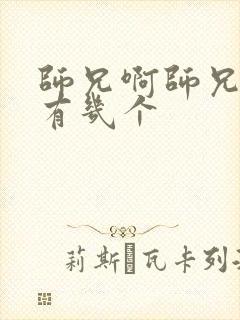 師兄啊師兄
有幾个
莉斯�瓦卡列